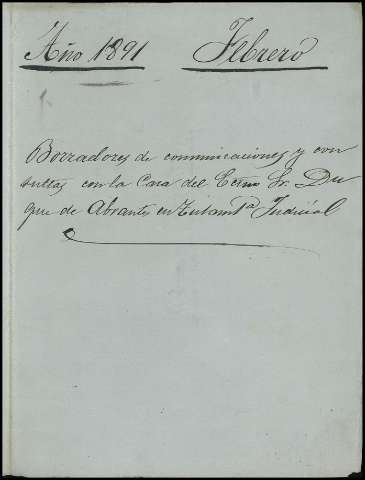 Año 1891 Febrero
Borradores de comunicaciones y con
sultas con la Casa del Exmo Sr. Du
que de Abrantes en Judicial